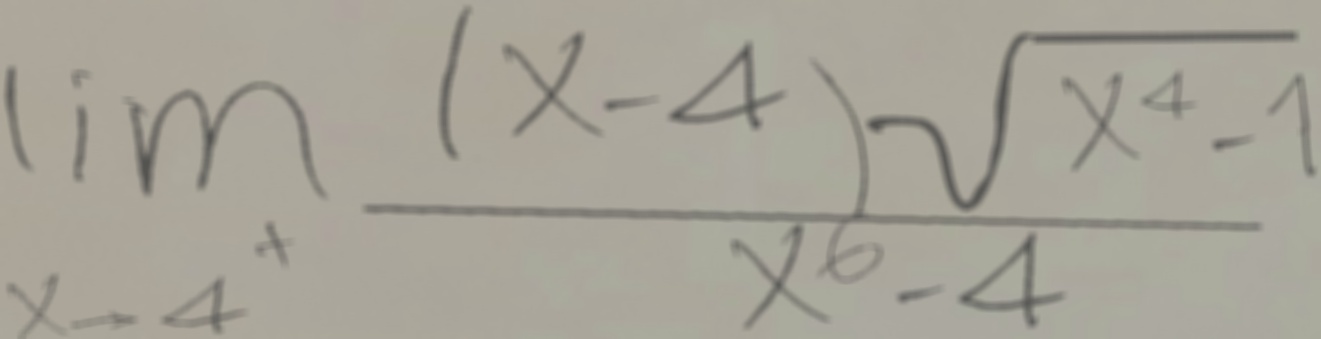 lim x→4⁺ (x-4)√(x⁴-1) / (x⁶-4)